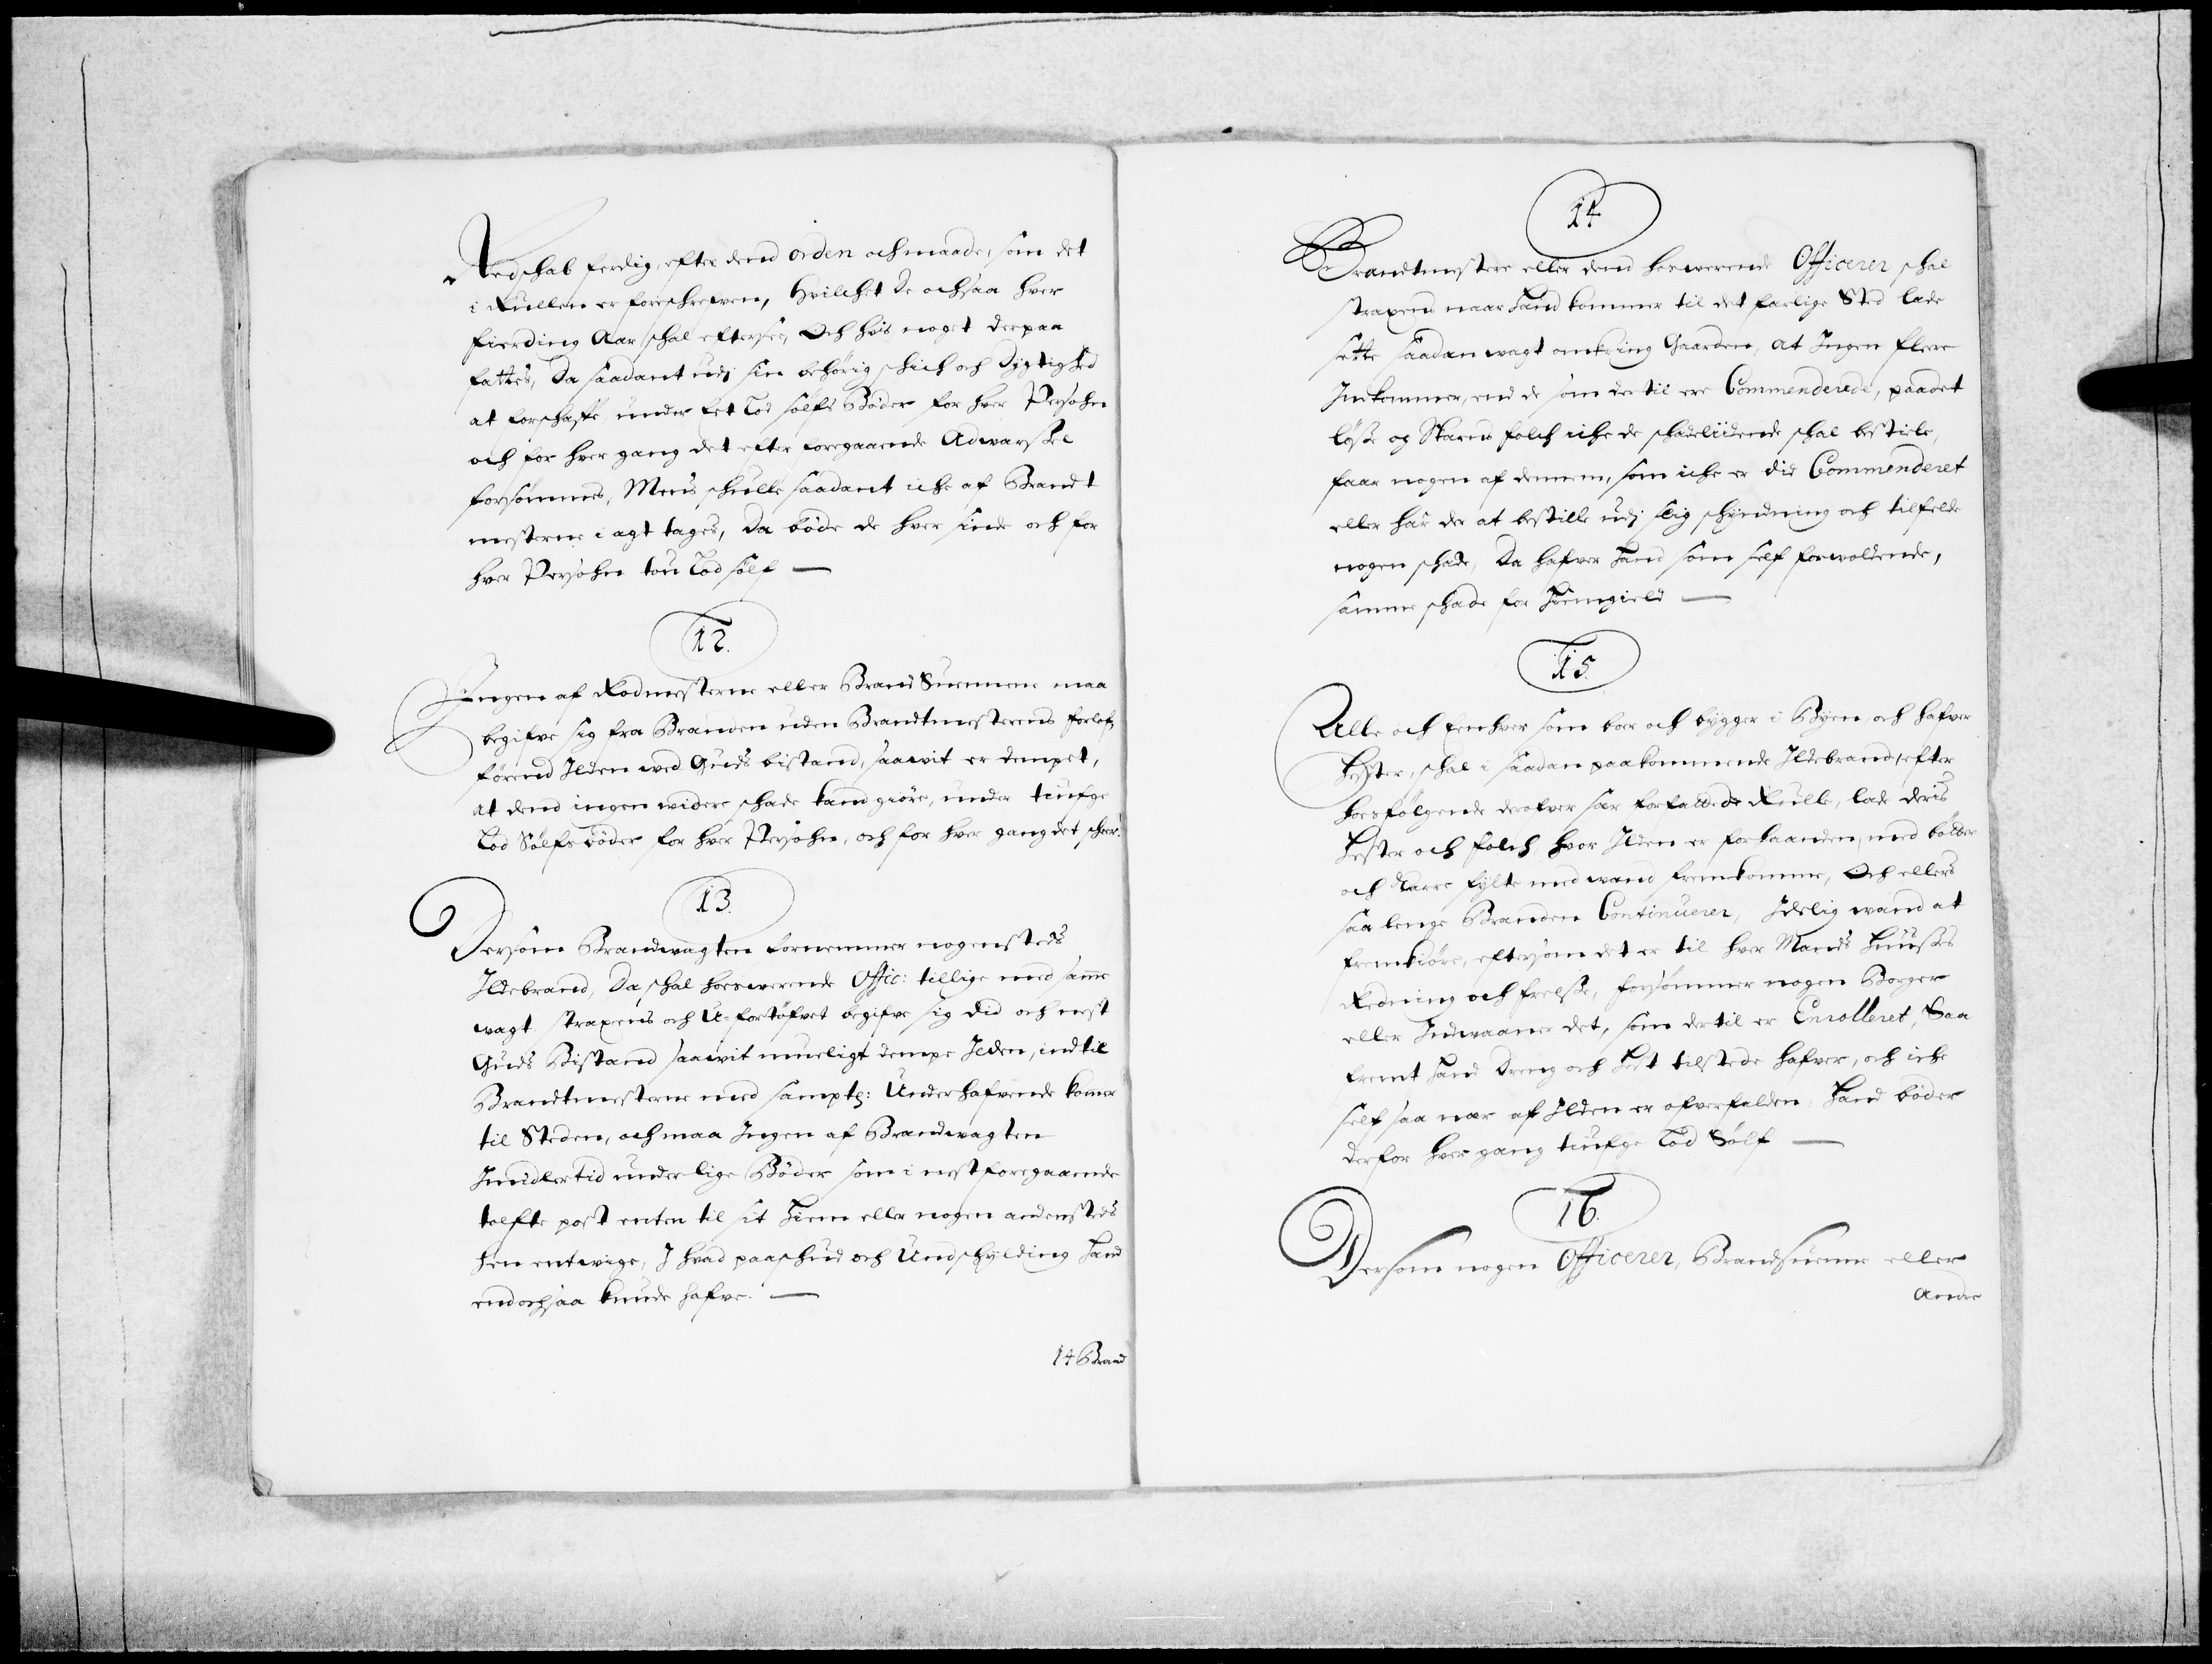 Redschab ferdig, efter dend orden och maade, som det
i Rullen er foreskrefven, Hvilchet De ochsaa hver
fierding Aar schal eftersee, Och hvis noget derpaa
fattes, Da saadant udj sin behörig schich och Dygtighed
at forschaffe, under Eet Lod sölfs Böder for hver Persohn
och for hver gang det efter foregaaende Adwarssel
forsömmes, Mens schulle saadant iche af Brandt
mesterne i agt tages, Da böde de hver sinde och for
hver Persohn tou Lod sölf —
12.
Ingen af Rodmesterne eller Brand Suennene maa
begifve sig fra Branden uden Brandtmesterens forlof,
förend Ilden wed Guds bistand, saawit er dempet,
at dend ingen widere schade kand giöre, under tiufge
Lod Sölfs böder for hver Persohn, och for hver gang det scheer.
13.
Dersom Brandwagten fornemmer nogensteds
Ildebrand, Da schal hoswerende Offic: tillige med samme
wagt straxens och U-fortöfvet begifve sig did och nest
Guds Bistand saawit mueligt dempe Ilden, indtil
Brandtmesterne med samptl: Underhafvende kommer
til Steden, och maa Ingen af Brandwagten
Imidlertid under lige Böder som i nest foregaaende
tolfte post enten til sit hiem eller nogen andensteds
hen entwige, I hvad paaschud och Undschylding hand
endochsaa kunde hafve. —
14 Brand
14
Brandtmestere eller dend hoswerende Officerer schal
straxens naar hand kommer til det farlige Sted lade
sette saadan wagt omkring Gaarden, at Ingen flere
Indkommer, end de som der til ere Commenderede, paa det
löse og Skarns folch iche de schadeliidende schal bestiele,
faar nogen af dennem, som iche er did Commenderet
eller har der at bestille udj slig schyndning och tilfelde
nogen schade, Da hafver hand som self forvoldende,
samme schade for hiemgield —
15.
Alle och Eenhver som boer och bygger i Byen och hafver
hester, schal i saadan paakommende Ildebrand, efter
hosfölgende derofver sær forfattede Rulle, lade deris
hester och folch, hvor Ilden er forhaanden, med böller
och Karre fylte med wand fremkomme, Och ellers
saa lenge Branden Continuerer, Idelig wand at
fremkiöre, eftersom det er til hver Mands huuses
Redning och frelse, forsömmer nogen Borger
eller Indwaaner det, som dertil er Enrolleret, Saa
fremt hand Dreng och hest tilstede hafver, och iche
self saa nær af Ilden er ofverfalden, hand böder
derfor hver gang tiufge Lod Sölf —
16.
Dersom nogen Officerer, Brandsuenne eller
Andre